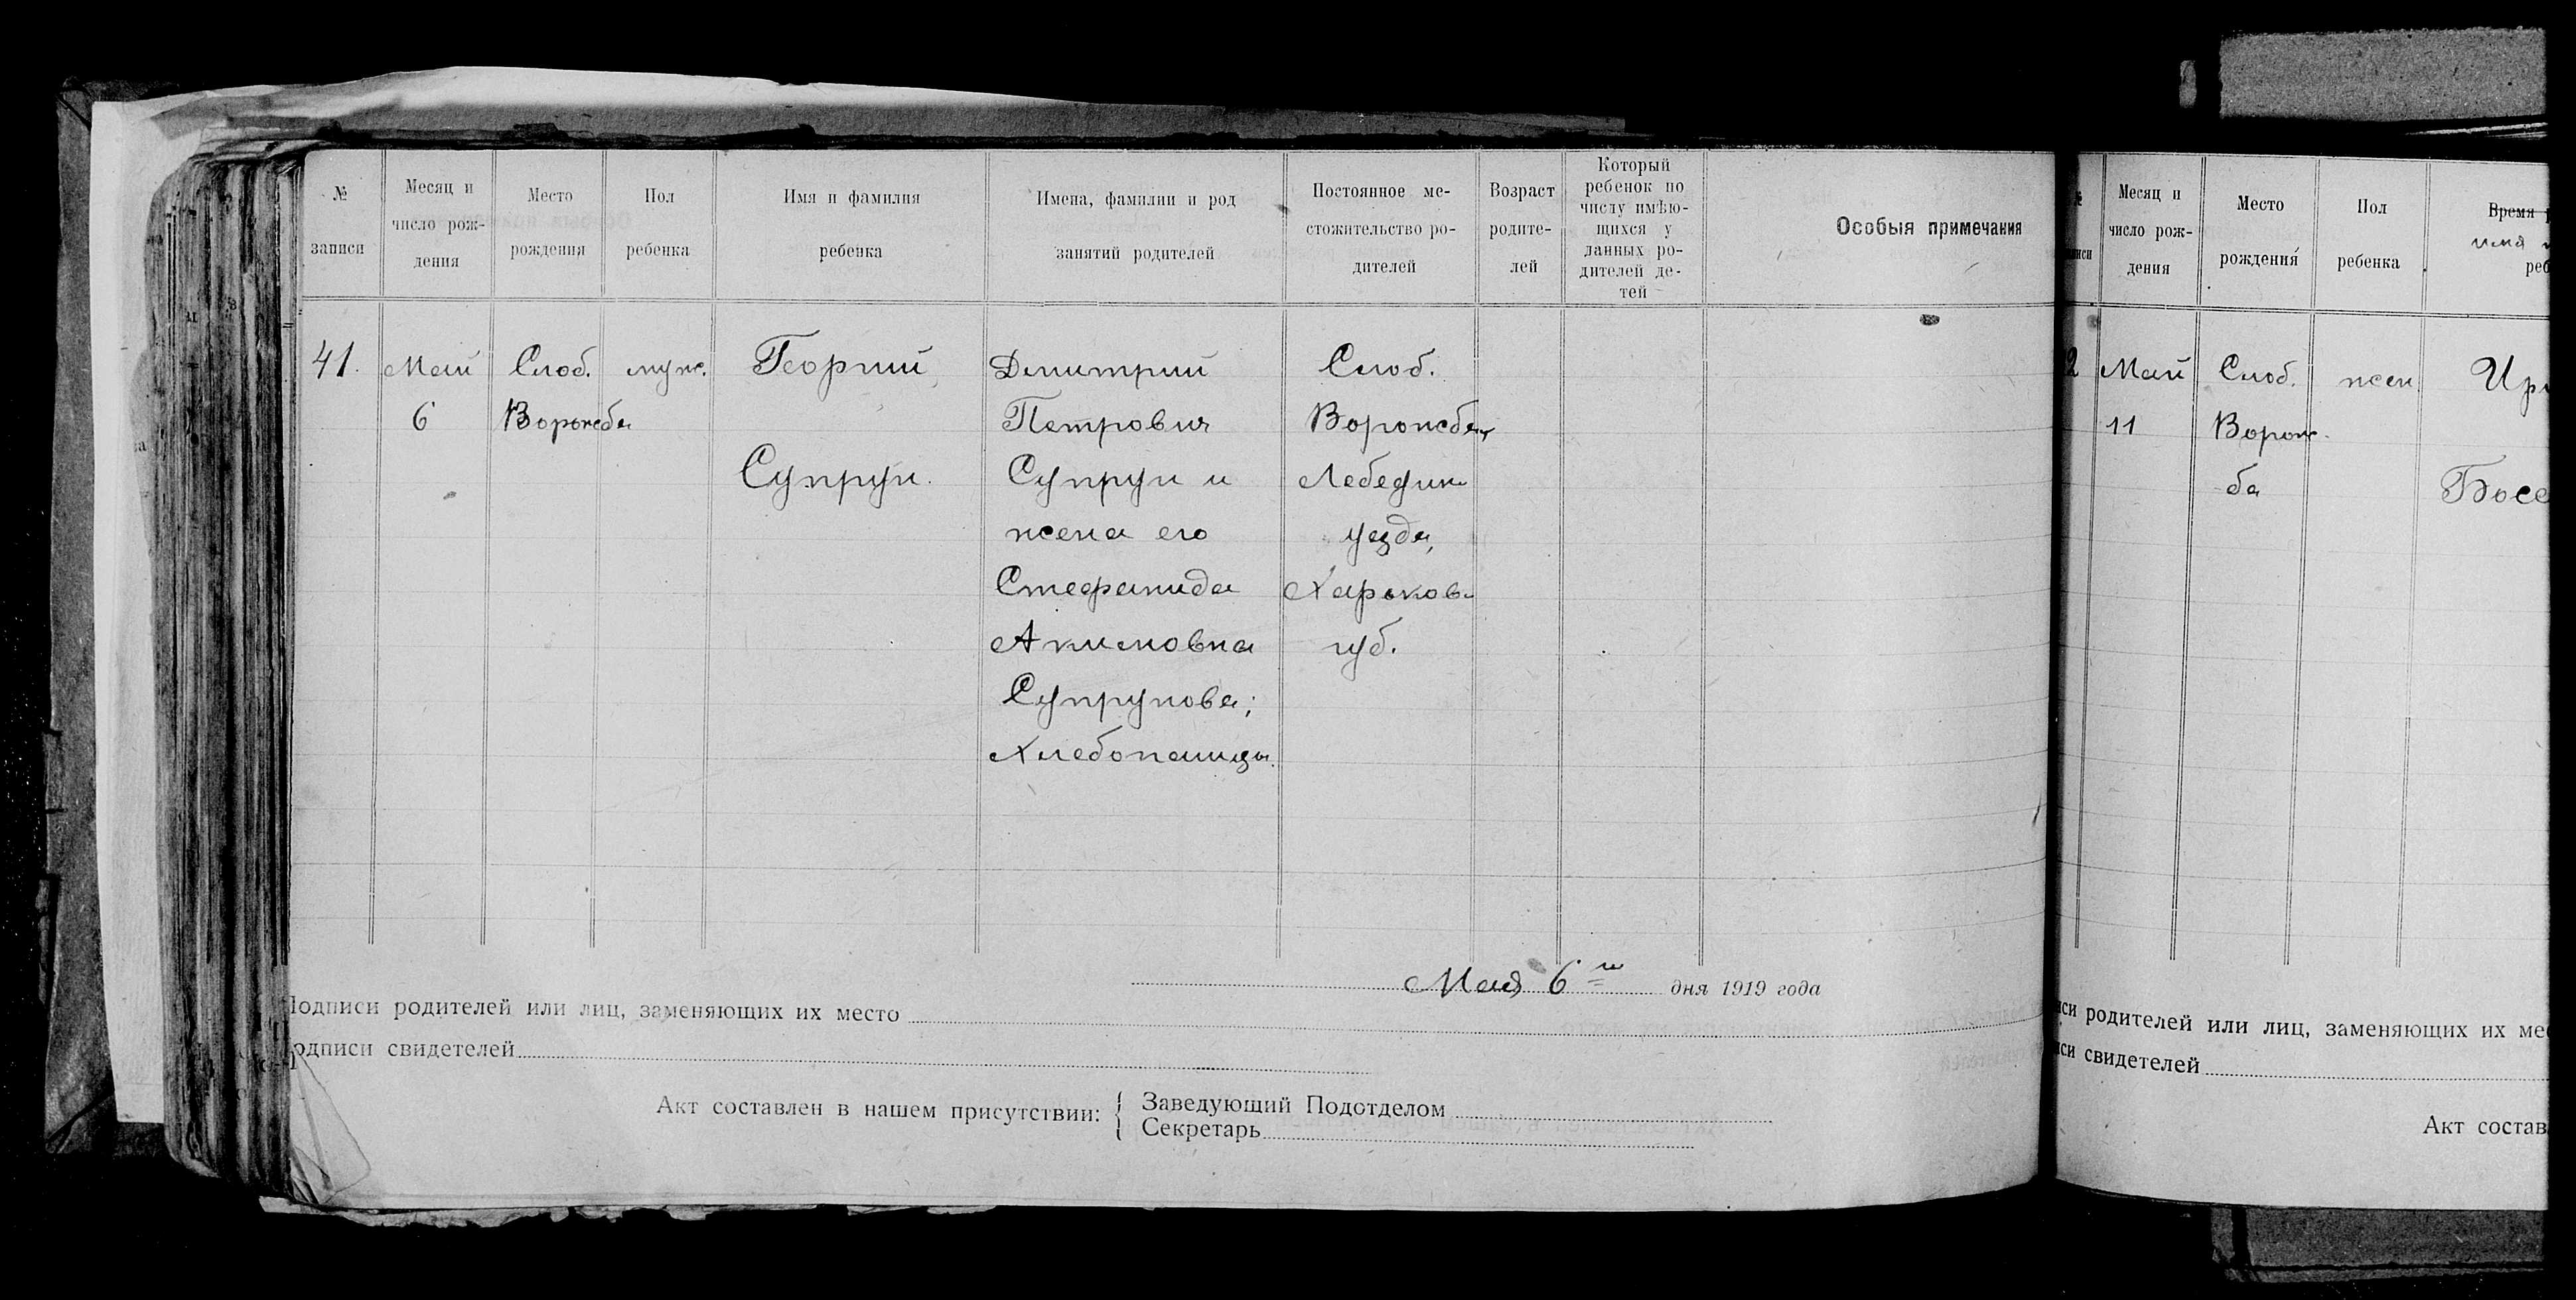 № записи
Месяц и число рож-дения
Место рождения
Пол ребенка
Имя и фамилия ребенка
Имена, фамилии и род занятий родителей
Постоянное ме-стожительство ро-дителей
Возраст родите-лей
Который ребенок по числу имѣю-щихся у данных ро-дителей де-тей
Особыя примечания
41. Май Слоб. муж. Георгий, Дмитрий Слоб.
6 Ворожба Петрович Ворожбы,
Супрун. Супрун и Лебедин.
жена его уезда,
Стефанида Харьков.
Акимовна губ.
Супрунова;
Хлебопашцы.
Мая 6го дня 1919 года
Подписи родителей или лиц, заменяющих их место
Подписи свидетелей
Акт составлен в нашем присутствии:
Заведующий Подотделом
Секретарь
№
Месяц и число рож-дения
Место рождения
Пол ребенка
Время
имя
реб
2 Май Слоб. жен Ири
11 Ворож-
ба Босе
иси родителей или лиц, заменяющих их мес
иси свидетелей
Акт состав